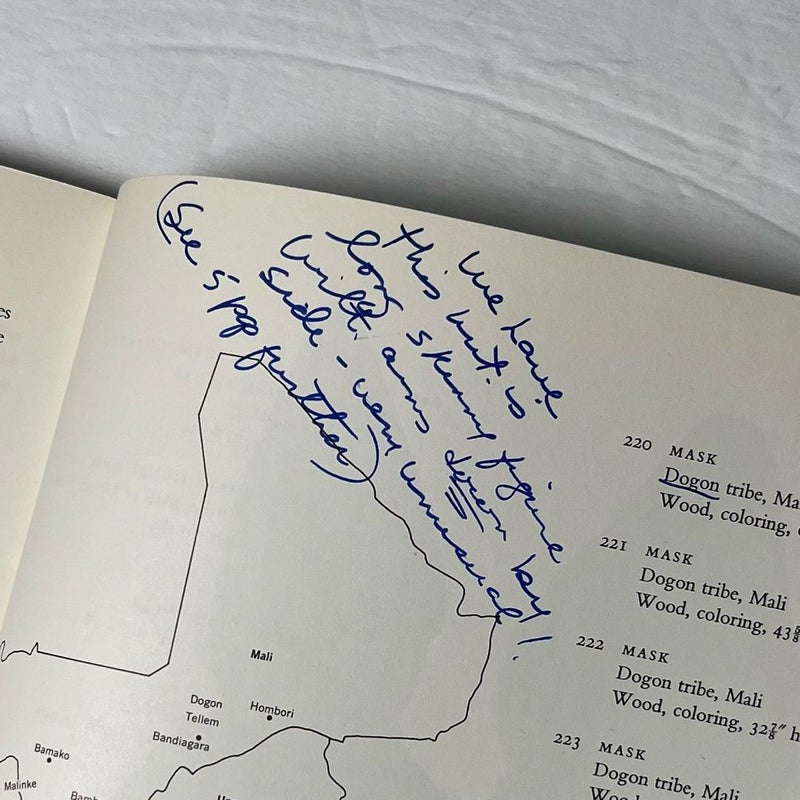 We have
this but is
long skinny figure
with arms down by
side - very unusual!
(See 5 pp further)
220 MASK
Dogon tribe, Ma
Wood, coloring,
221 MASK
Dogon tribe, Mali
Wood, coloring, 43⅝
222 MASK
Dogon tribe, Mali
Wood, coloring, 32⅞" h
223 MASK
Dogon tribe, Mali
Mali
Dogon
Tellem
Hombori
Bandiagara
Bamako
Malinke
es
e